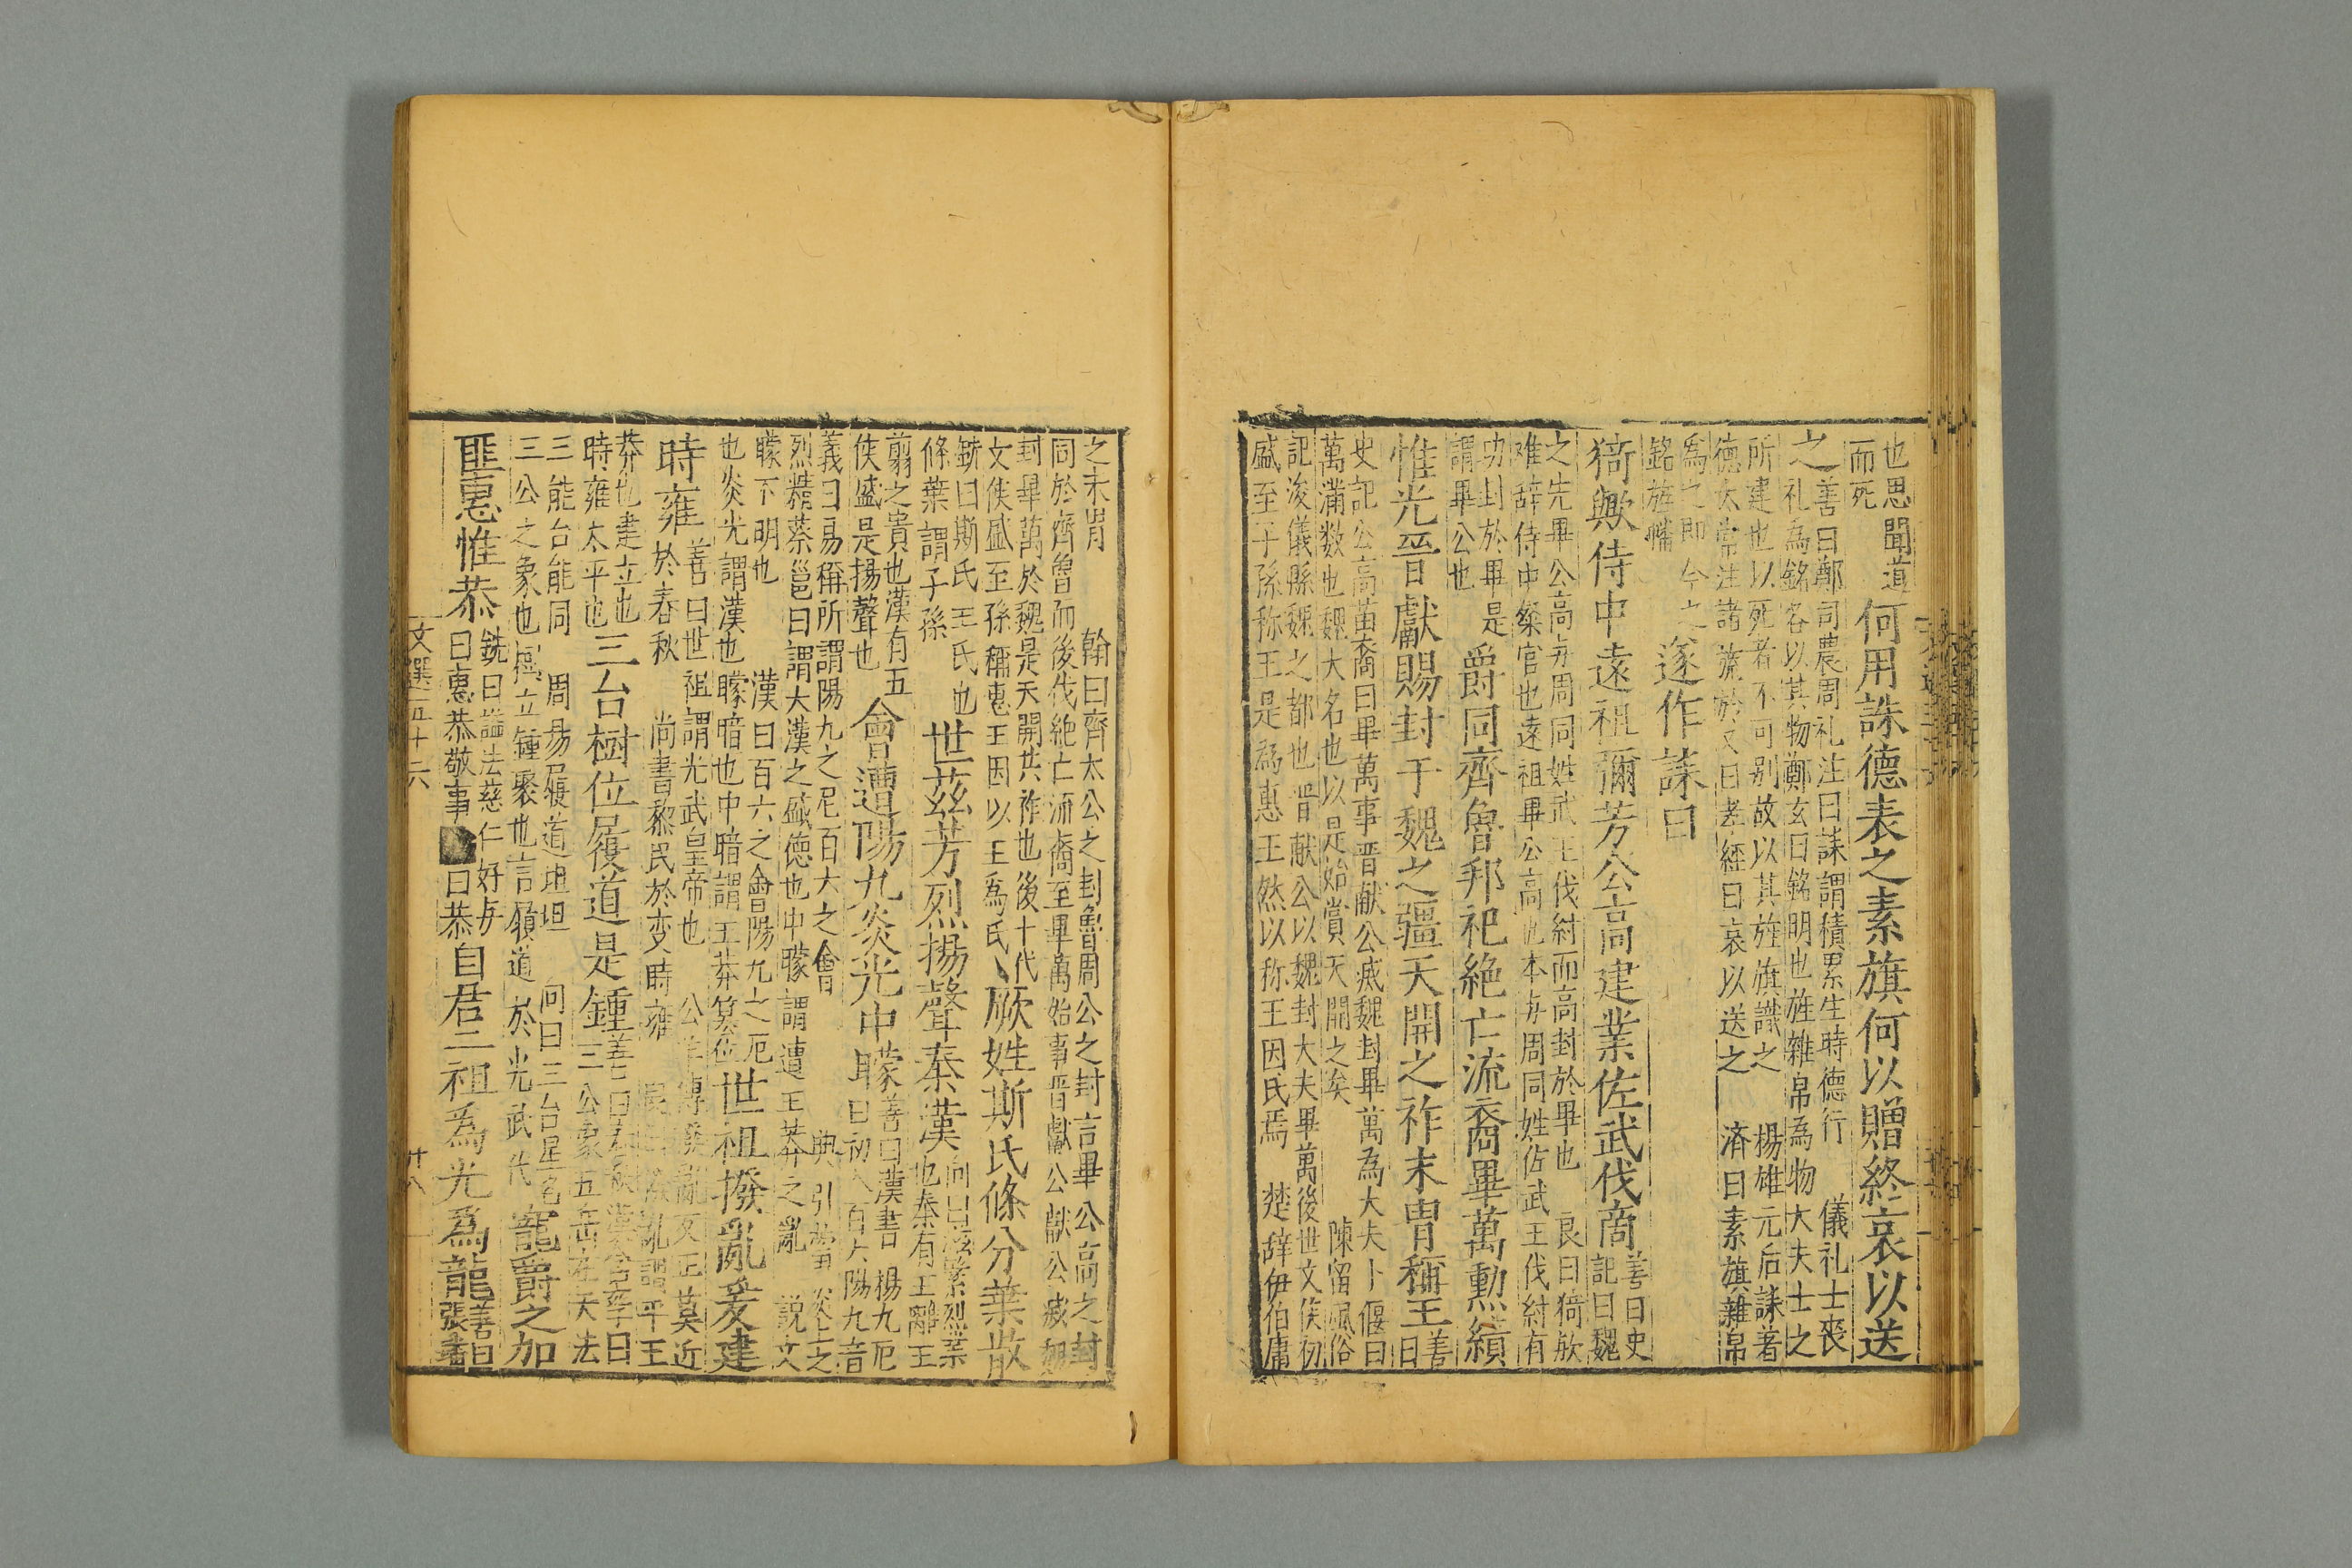 也思聞道
而死
何用誄德表之素旗何以贈終哀以送
之
善曰鄭司農周礼注曰誄謂積累生時德行 儀礼士喪
礼為銘各以其物鄭玄曰銘明也旌雜帛為物大夫士之
所建也以死者不可别故以其旌旗識之 楊雄元后誄著
德太常注諸旒於又曰孝經曰哀以送之 済曰素旗雜帛
為之即今之
銘旌幡
遂作誄曰
猗歟侍中遠祖彌芳公高建業佐武伐商
善曰史
記曰魏
之先畢公高与周同姓武王伐紂而高封於畢也 良曰猗欤
难辞侍中粲官也遠祖畢公高也本与周同姓佐武王伐紂有
功封於畢是
謂畢公也
爵同齊魯邦祀絶亡流裔畢萬勲績
惟光晉獻賜封于魏之疆天開之祚末冑稱王
善
曰
史記公高苗裔曰畢萬事晋献公灭魏封畢萬為大夫卜偃曰
萬满数也魏大名也以是始賞天開之矣 陳留風俗
記浚儀縣魏之都也晋献公以魏封大夫畢萬後世文侯初
盛至于孫称王是為惠王然以称王因氏焉 楚辞伊伯庸
之末冑 翰曰齊太公之封魯周公之封言畢公高之封
同於齊魯而後伐絶亡流裔至畢萬始事晋獻公獻公滅
封畢萬於魏是天開其祚也後十代
文侯盛至孫稱惠王因以王為氏
厥姓斯氏條分葉散
銑曰斯氏王氏也
條葉謂子孫
世茲芳烈揚聲秦漢
向曰茲繁烈業
也秦有王離王
翦之貴也漢有五
侯盛是揚聲也
會遭陽九炎光中矇
善曰漢書 楊九厄
曰初入百六陽九音
義曰易稱所謂陽九之厄百六之會 典引蓄炎上之
烈精蔡邕曰謂大漢之盛德也中矇謂遭王莽之亂 説文
矇不明也 漢曰百六之會陽九之厄
也炎光謂漢也矇暗也中暗謂王莽簒位
世祖撥亂爰建
時雍
善曰世祖謂光武皇帝也 公羊傳撥亂反正莫近
於春秋 尚書黎民於变時雍
莽也建立也
時雍太平也
三台樹位履道是鍾
三公象五岳在天法
三能台能同 周易履道坦坦 向曰三台星名
三公之象也樹立鍾聚也言履道於光武代
寵爵之加
匪惠惟恭
銑曰謚法慈仁好与
曰惠恭敬事
曰恭
自君二祖為光為龍
善曰
張璠
文選五十六
廿八